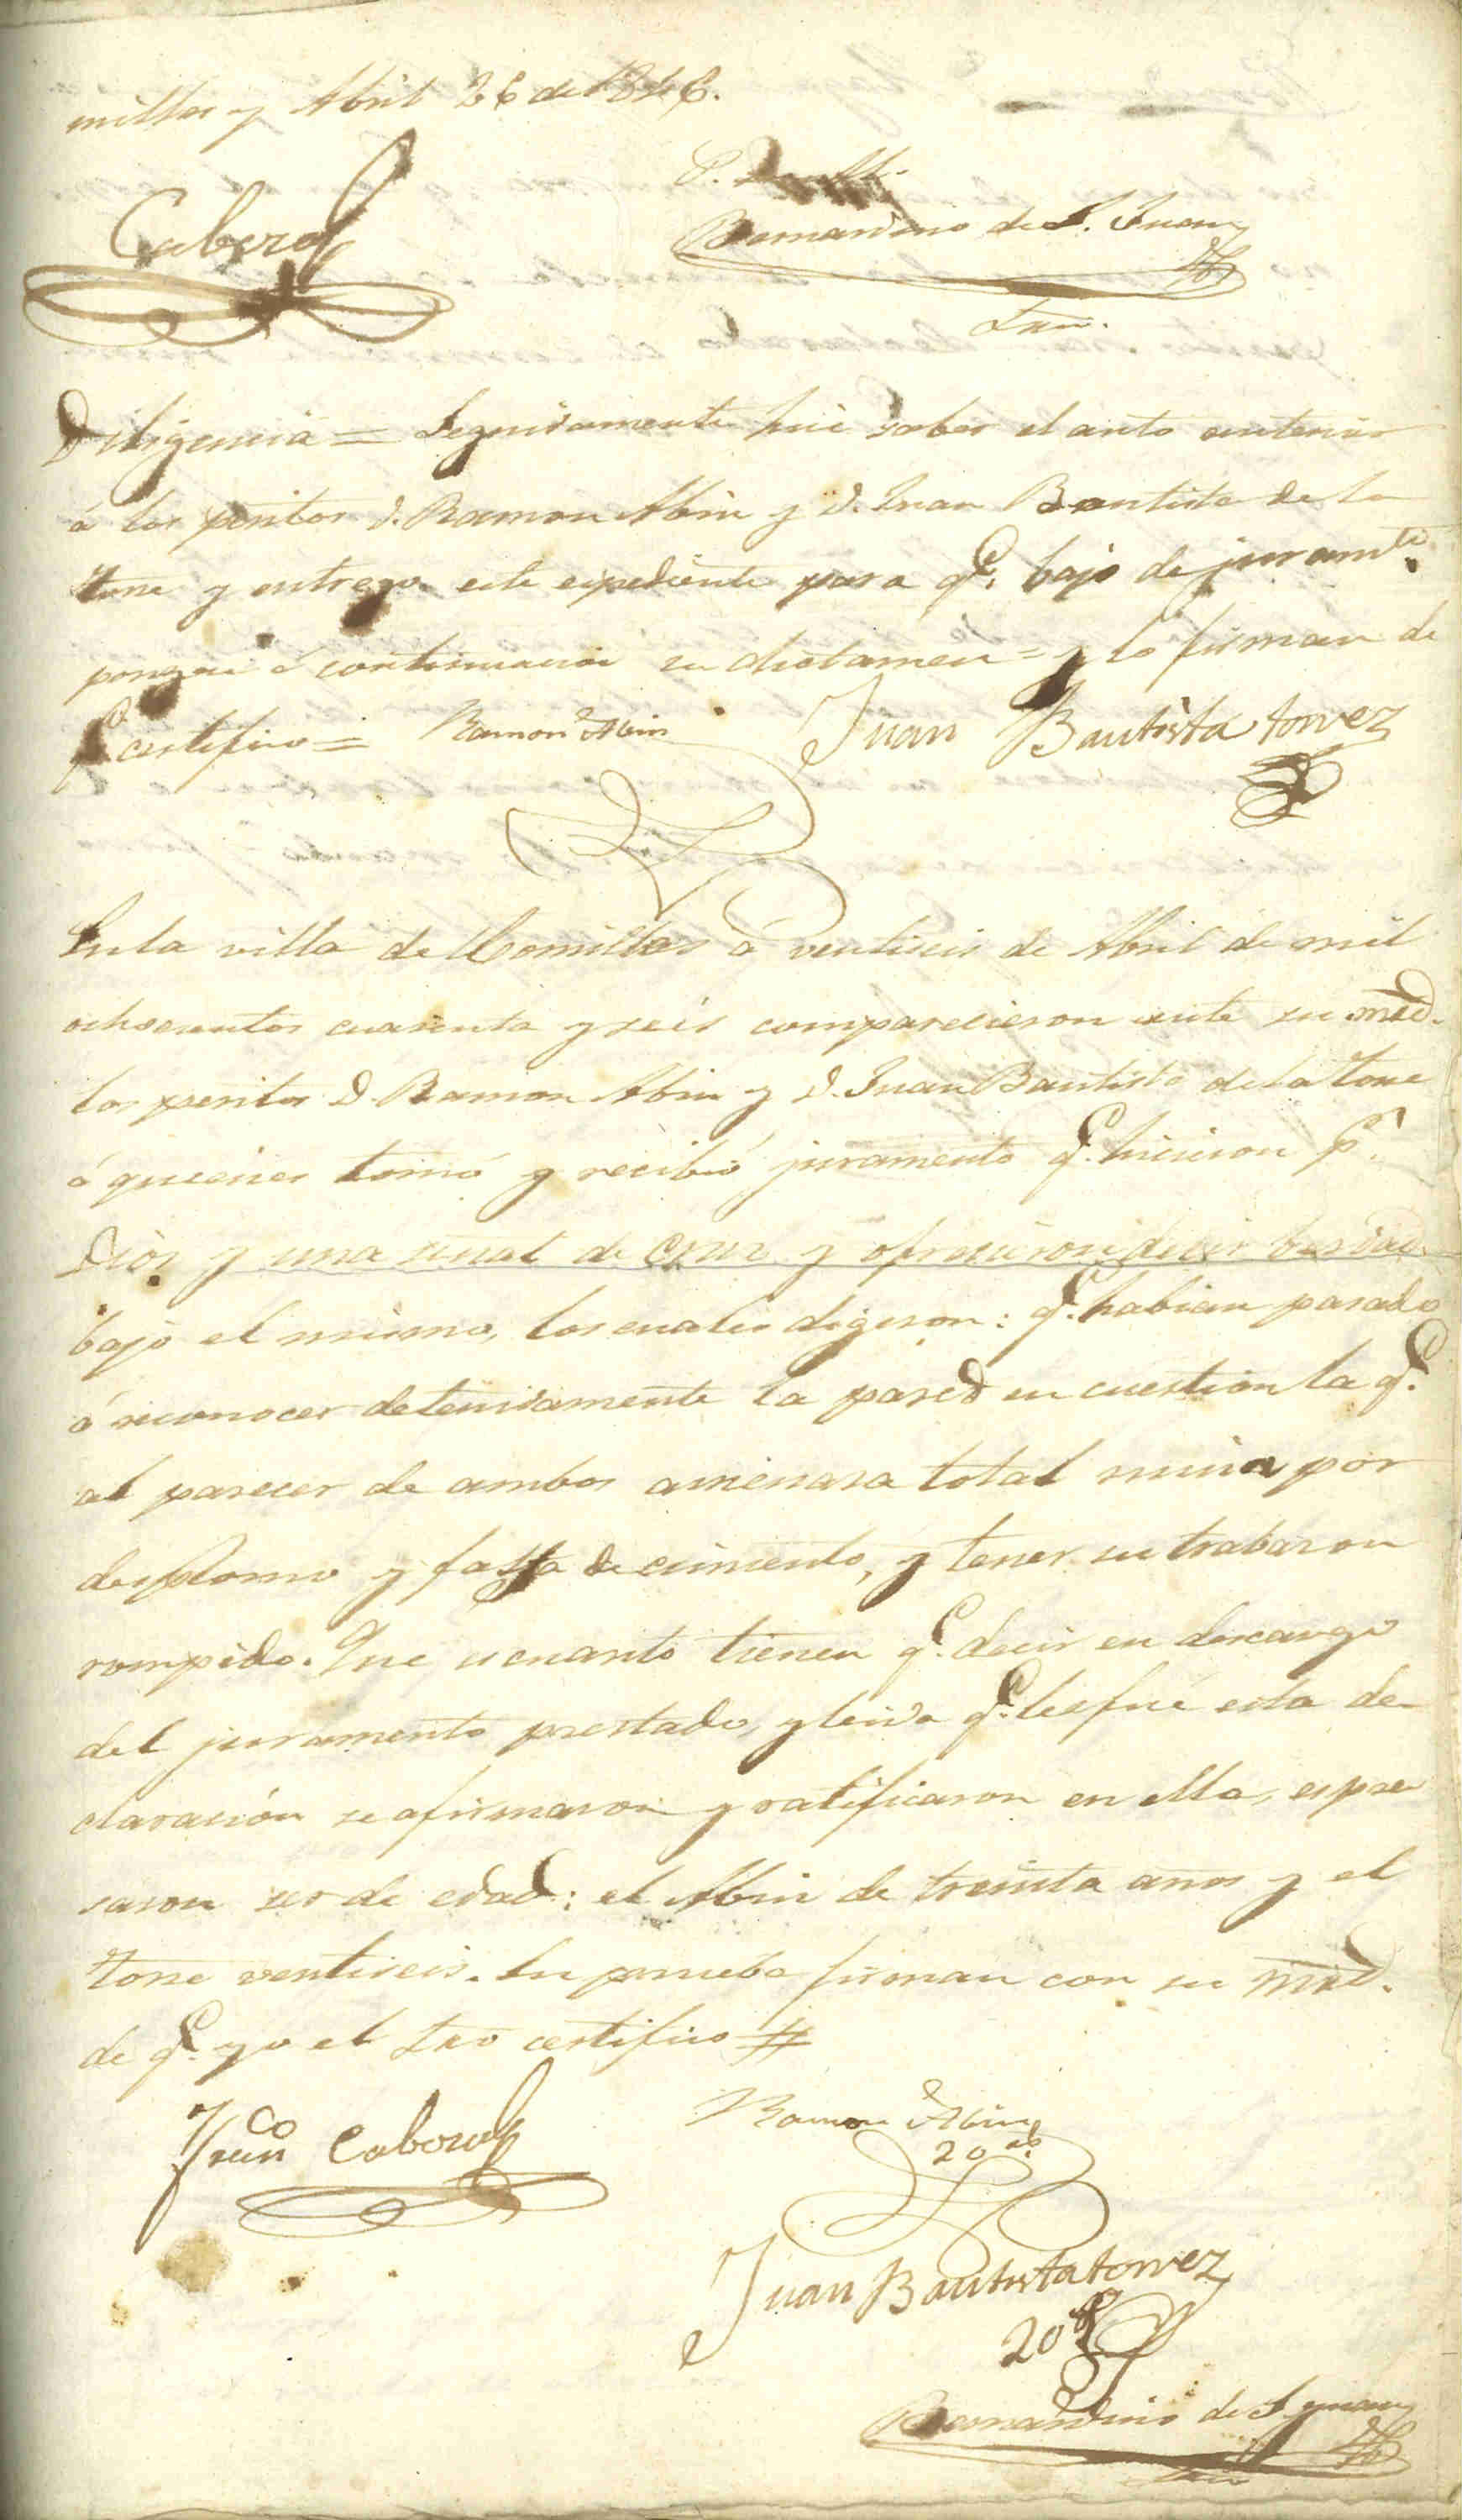 millas y Abril 26 de 1846.
P. S. M.
Cabezal
Bernardino de S. Juan
Sno.
Diligencia = Seguidamente hice saber el auto anterior
á los peritos D. Ramon Abin y D. Juan Bautista de la
Torre y entrego este espediente para q.e bajo de juram.to
pongan á continuacion su dictamen = y lo firman de
q.e certifico =
Ramon Abin
Juan Bautista torrez
En la villa de Comillas á ventiseis de Abril de mil
ochocientos cuarenta y seis comparecieron ante su mrd.
los peritos D. Ramon Abin y D. Juan Bautista de la Torre
á quienes tomó y recibió juramento q.e hicieron p.r
Dios y una señal de cruz y ofrecieron decir berdad
bajo el mismo, los cuales digeron: q.e habian pasado
á reconocer detenidamente la pared en cuestion la q.e
al parecer de ambos amenasa total ruina por
desplomo y falta de cimiento, y tener su trabazon
rompido. Que es cuanto tienen q.e decir en descargo
del juramento prestado, y leida q.e les fué esta de-
claración se afirmaron y ratificaron en ella, espre
saron ser de edad: el Abin de treinta años y el
Torre ventiseis. En prueba firman con su mrd.
de q.e yo el Sno certifico #
Fran.co Cabezal
Ramon Abin
20 rs.
Juan Bautista torrez
20 r
Bernardino de S. Juan
Sno